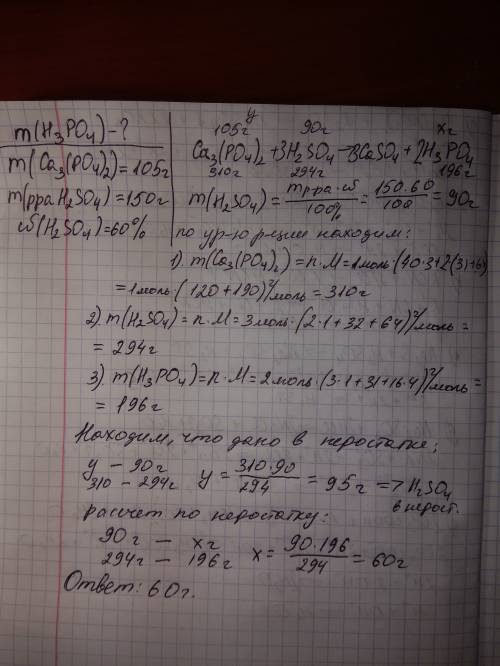 m(H₃PO₄)-?
m(Ca₃(PO₄)₂)=105г
m(рра H₂SO₄)=150г
ω(H₂SO₄)=60%
y
105г 90г xг
Ca₃(PO₄)₂+3H₂SO₄→3CaSO₄+2H₃PO₄
310г 294г 196г
m(H₂SO₄)= mрра·ω/100% = 150·60/100 =90г
по ур-ю р-ции находим:
1). m(Ca₃(PO₄)₂)=n·M=1моль·(40·3+2(31+64)
=1моль·(120+190)г/моль=310г
2) m(H₂SO₄)=n·M=3моль·(2·1+32+64)г/моль=
=294г
3). m(H₃PO₄)=n·M=2моль·(3·1+31+16·4)г/моль=
=196г
Находим, что дано в недостатке;
y – 90г
310 – 294г
y= 310·90/294 =95г => H₂SO₄
в недост.
рассчет по недостатку:
90г – xг
294г – 196г
x= 90·196/294 =60г
Ответ: 60г.